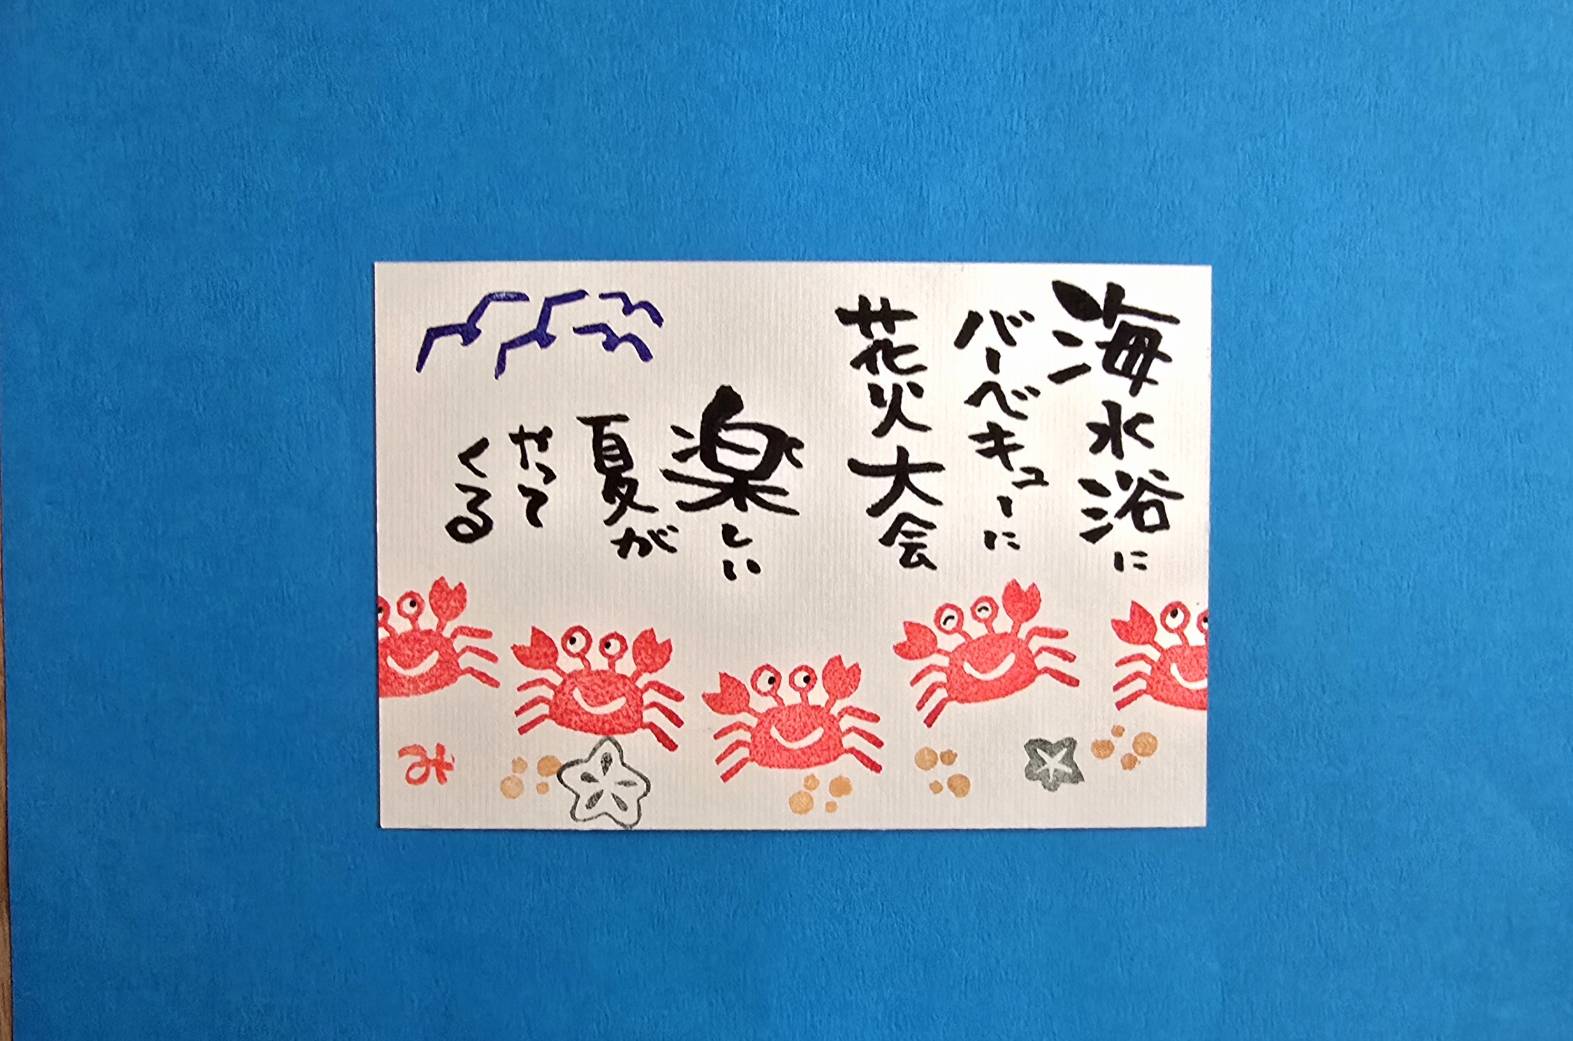 海水浴に
バーベキューに
花火大会
楽しい
夏が
やって
くる
み